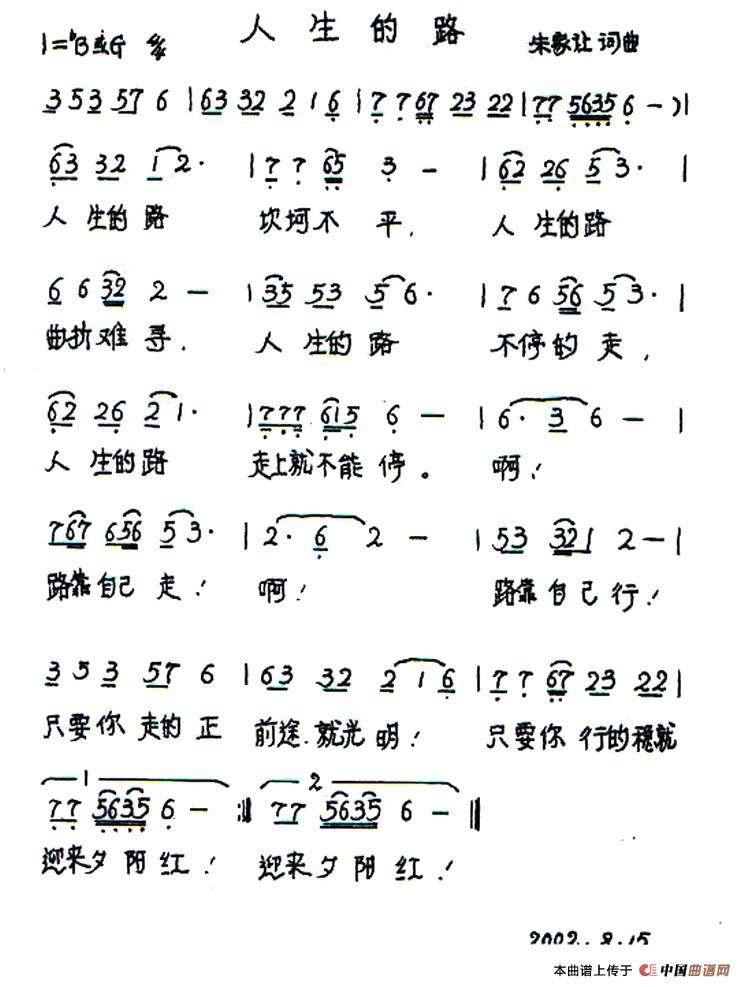 人生的路
1=ᵇB或G 朱家让 词曲
3 5 3 5 7 6 | 6 3 3 2 2 1 6 | 7 7 6 7 2 3 2 2 | 7 7 5 6 3 5 6 — ) |
6 3 3 2 1 2 · | 7 7 6 5 3 — | 6 2 2 6 5 3 · |
人 生的 路 坎坷不 平, 人 生的路
6 6 3 2 2 — | 3 5 5 3 5 6 · | 7 6 5 6 5 3 · |
曲折难 寻. 人 生的 路 不停的 走,
6 2 2 6 2 1 · | 7 7 7 6 1 5 6 — | 6 · 3 6 — |
人 生的 路 走上就不能 停。 啊!
7 6 7 6 5 6 5 3 · | 2 · 6 2 — | 5 3 3 2 1 2 — |
路靠自己 走! 啊! 路靠 自己 行!
3 5 3 5 7 6 | 6 3 3 2 2 1 6 | 7 7 6 7 2 3 2 2 |
只要你 走的 正 前途.就光 明! 只要你 行的稳就
1 2
7 7 5 6 3 5 6 — :‖ 7 7 5 6 3 5 6 — ‖
迎来夕 阳 红! 迎来夕阳 红!
2002. 8.15
本曲谱上传于 中国曲谱网